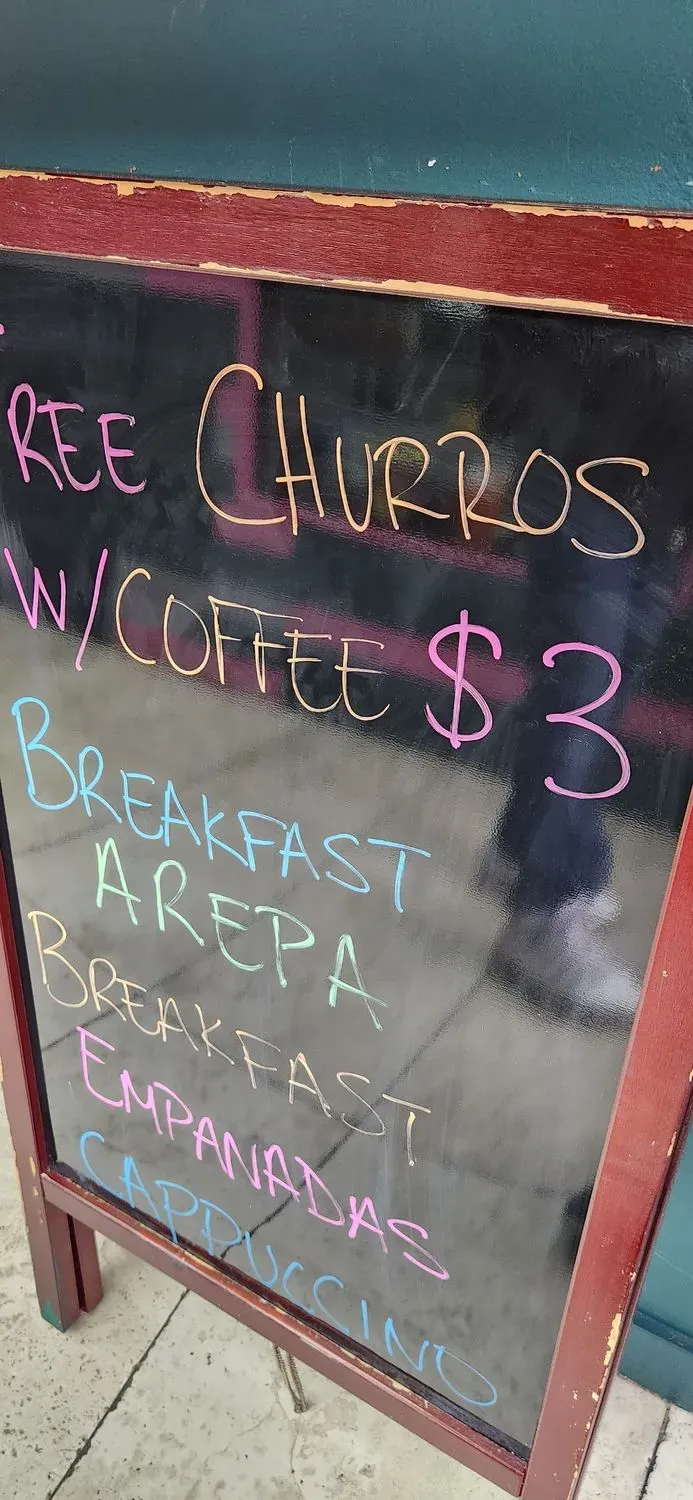 REE CHURROS
W/COFFEE $3
BREAKFAST
AREPA
BREAKFAST
EMPANADAS
CAPPUCCINO